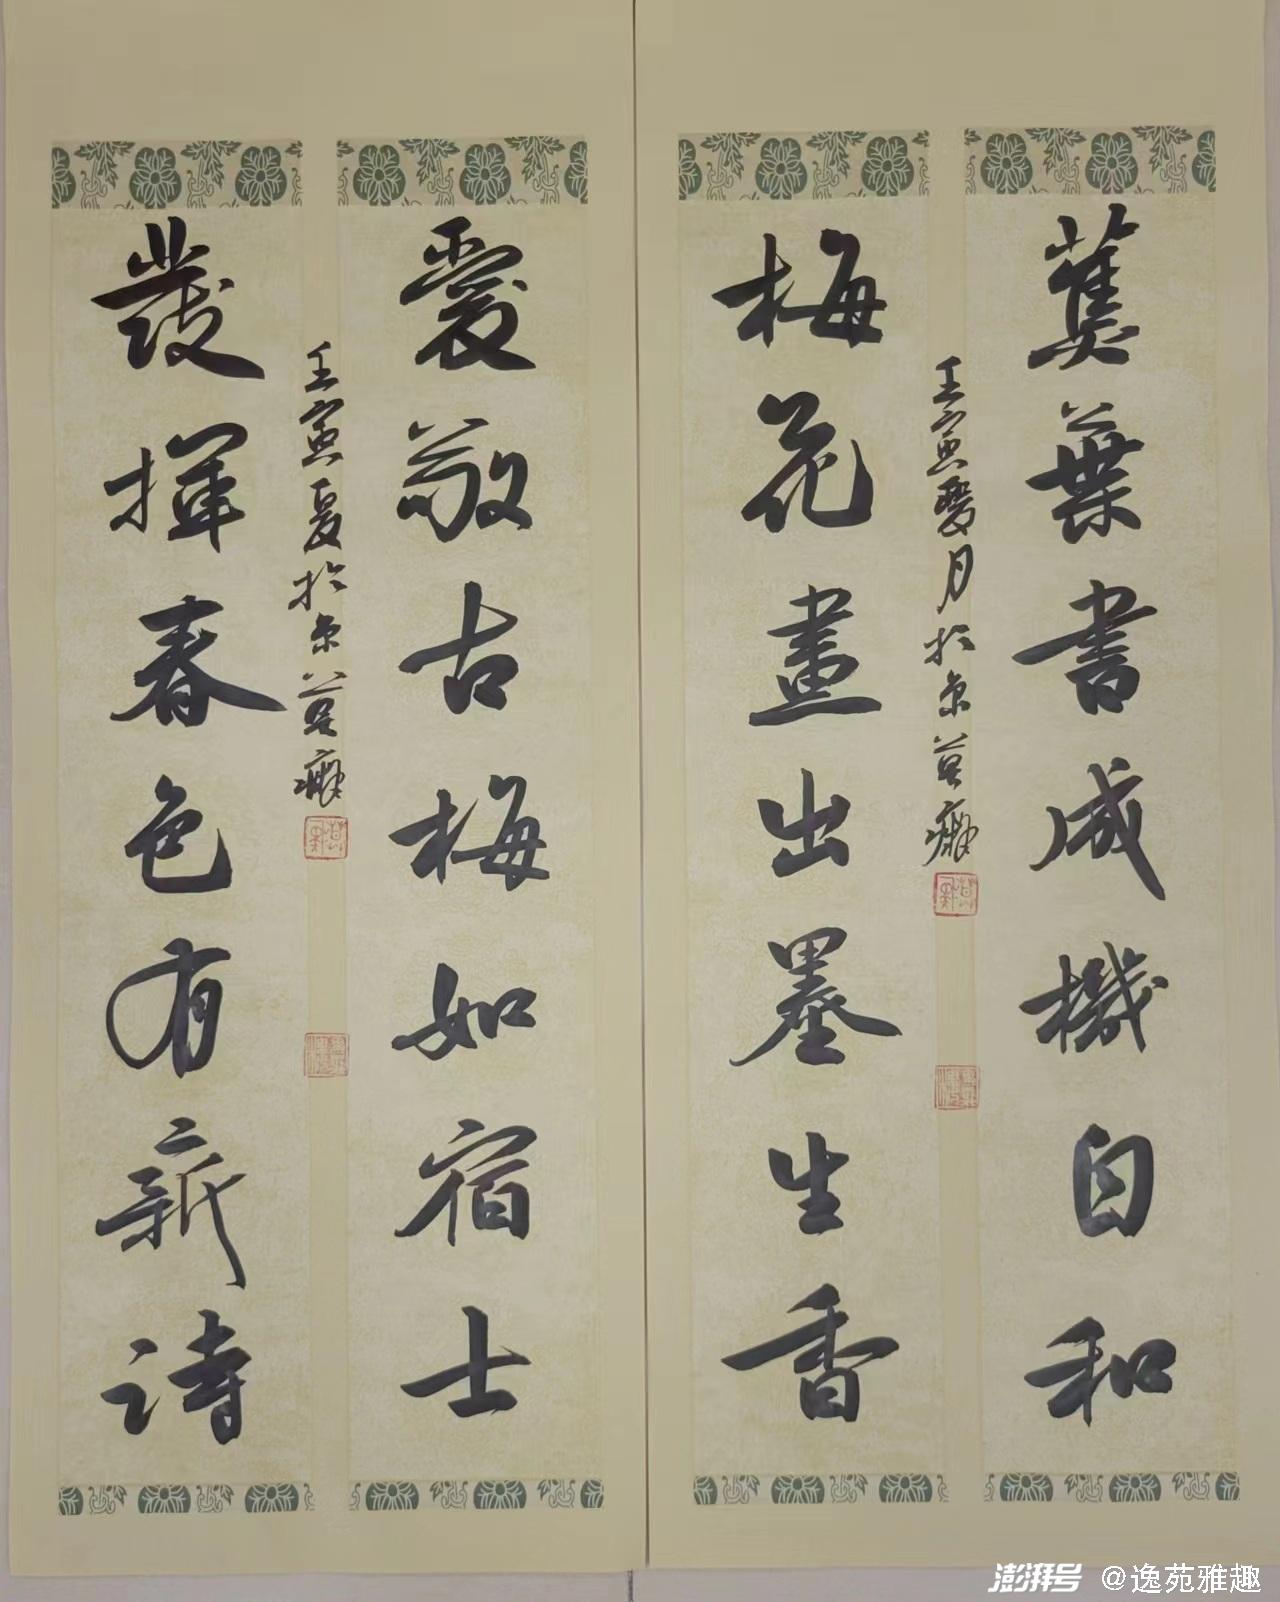 蕉葉書成機自和
梅花畫出墨生香
壬寅夏月於京莫癡
愛敬古梅如宿士
發揮春色有新詩
壬寅夏於京莫癡
澎湃号 @逸苑雅趣